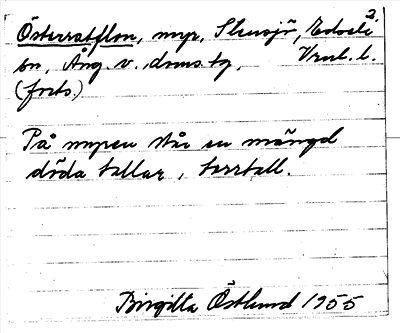 2.
Österratflon, myr, Stensjö, Edsele
sn, Ång. v. doms.tg.
(forts.)
På myren står en mängd
döda tallar, torrtall.
Birgitta Östlund 1955